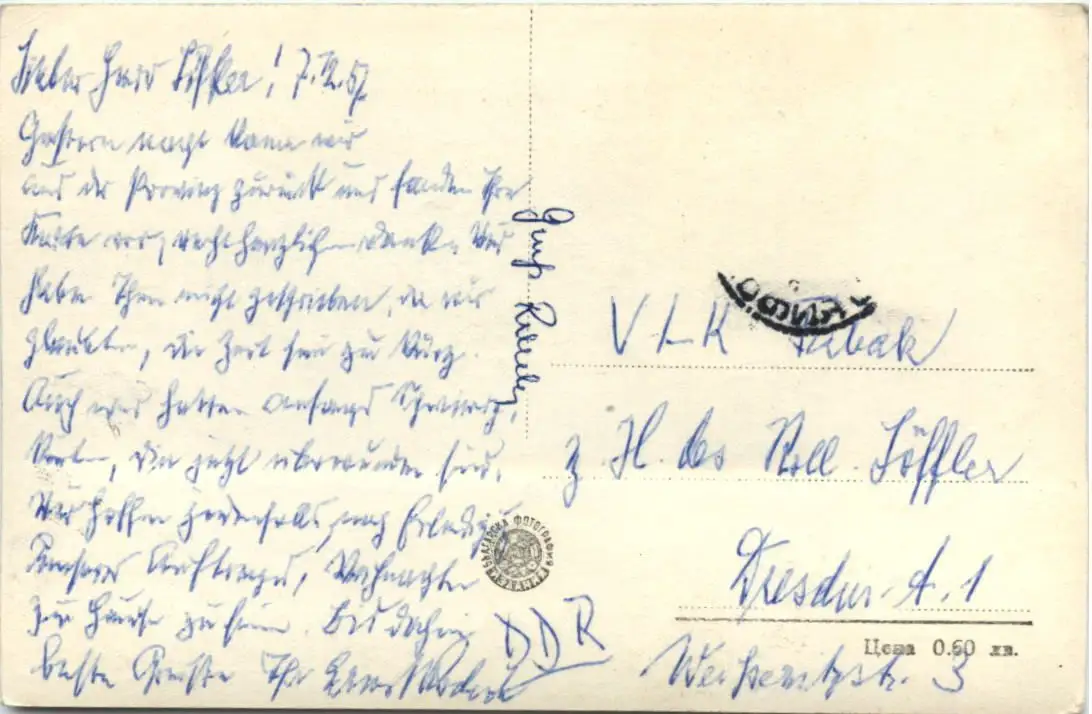 Lieber Herr Löffler! 7.12.57
Gestern nacht kamen wir
aus der Provinz zurück und fanden Ihre
Karte vor, recht herzlichen Dank. Wir
haben Ihnen nicht geschrieben, da wir
glaubten, die Zeit sei zu kurz.
Auch wir hatten anfangs Schwierig-
keiten, die jetzt überwunden sind.
Wir hoffen jedenfalls, nach Erledig.
unseres Auftrages, Weihnachten
zu Hause zu sein. Bis dahin
beste Grüße Ihr
Gruß
V L K
z. H. des Koll. Löffler
Dresden A. 1
Weißeritzstr. 3
DDR
БЪЛГАРСКА ФОТОГРАФИЯ
Цена 0.60 лв.